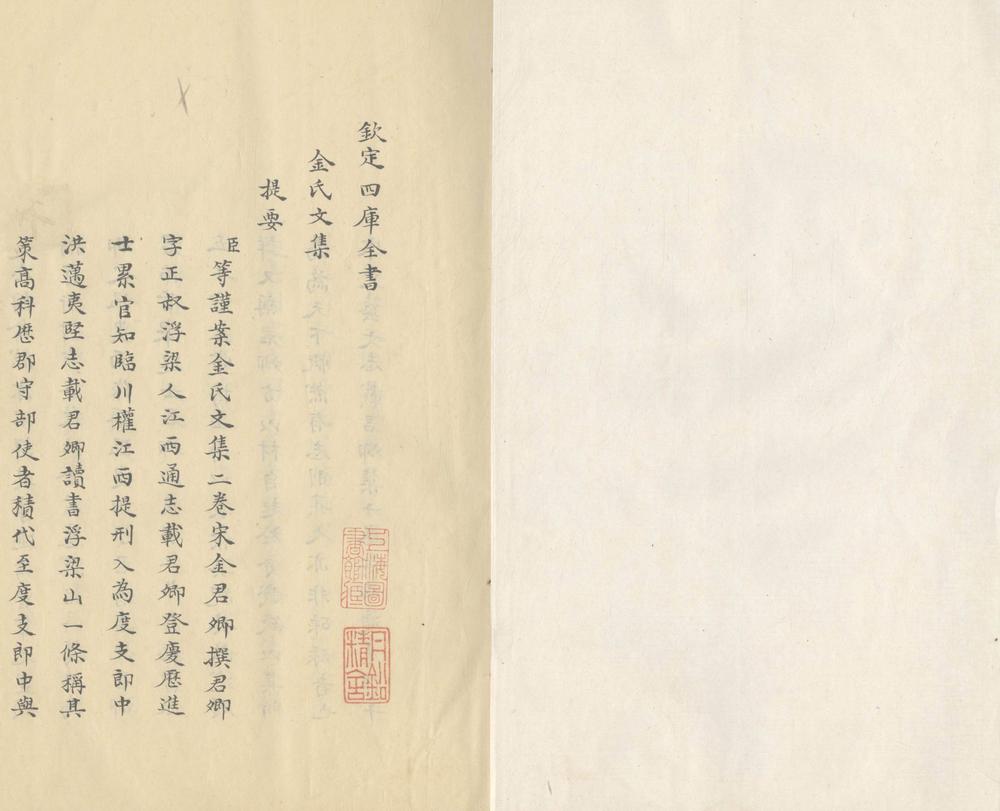 欽定四庫全書
金氏文集
提要
臣等謹案金氏文集二卷宋金君卿撰君卿
字正叔浮梁人江西通志載君卿登慶歷進
士累官知臨川權江西提刑入為度支郎中
洪邁夷堅志載君卿讀書浮梁山一條稱其
策高科歴郡守部使者積代至度支郎中與